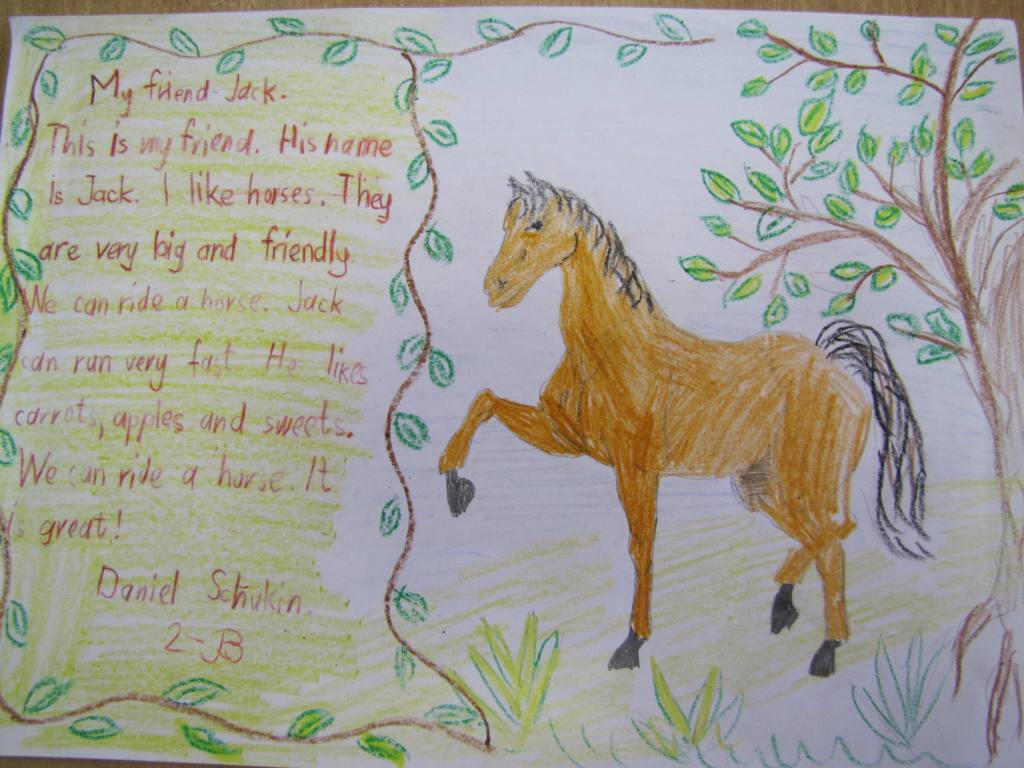 My friend Jack.
This is my friend. His name
is Jack. I like horses. They
are very big and friendly.
We can ride a horse. Jack
can run very fast. He likes
carrots, apples and sweets.
We can ride a horse. It
is great!
Daniel Schukin.
2-B